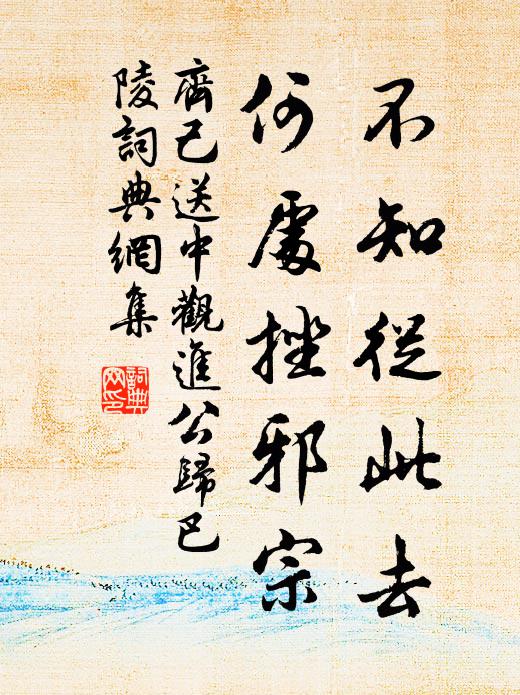 不知從此去
何處挫邪宗
齊己送中觀進公歸巴
陵詞典網集
詞典
网印